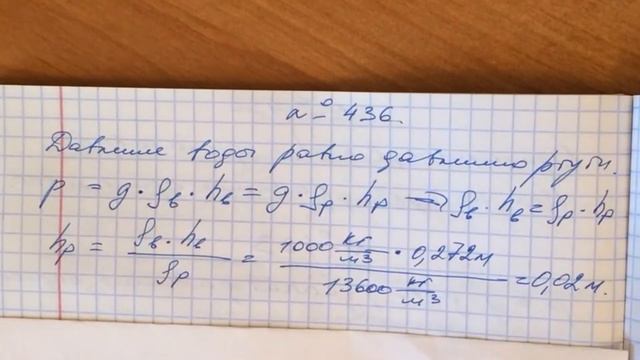 № 436.
Давление воды равно давлению ртути.
p = g·ρв·hв = g·ρр·hр → ρв·hв = ρр·hр
hр = ρв·hв / ρр = 1000 кг/м³ · 0,272м / 13600 кг/м³ = 0,02м.